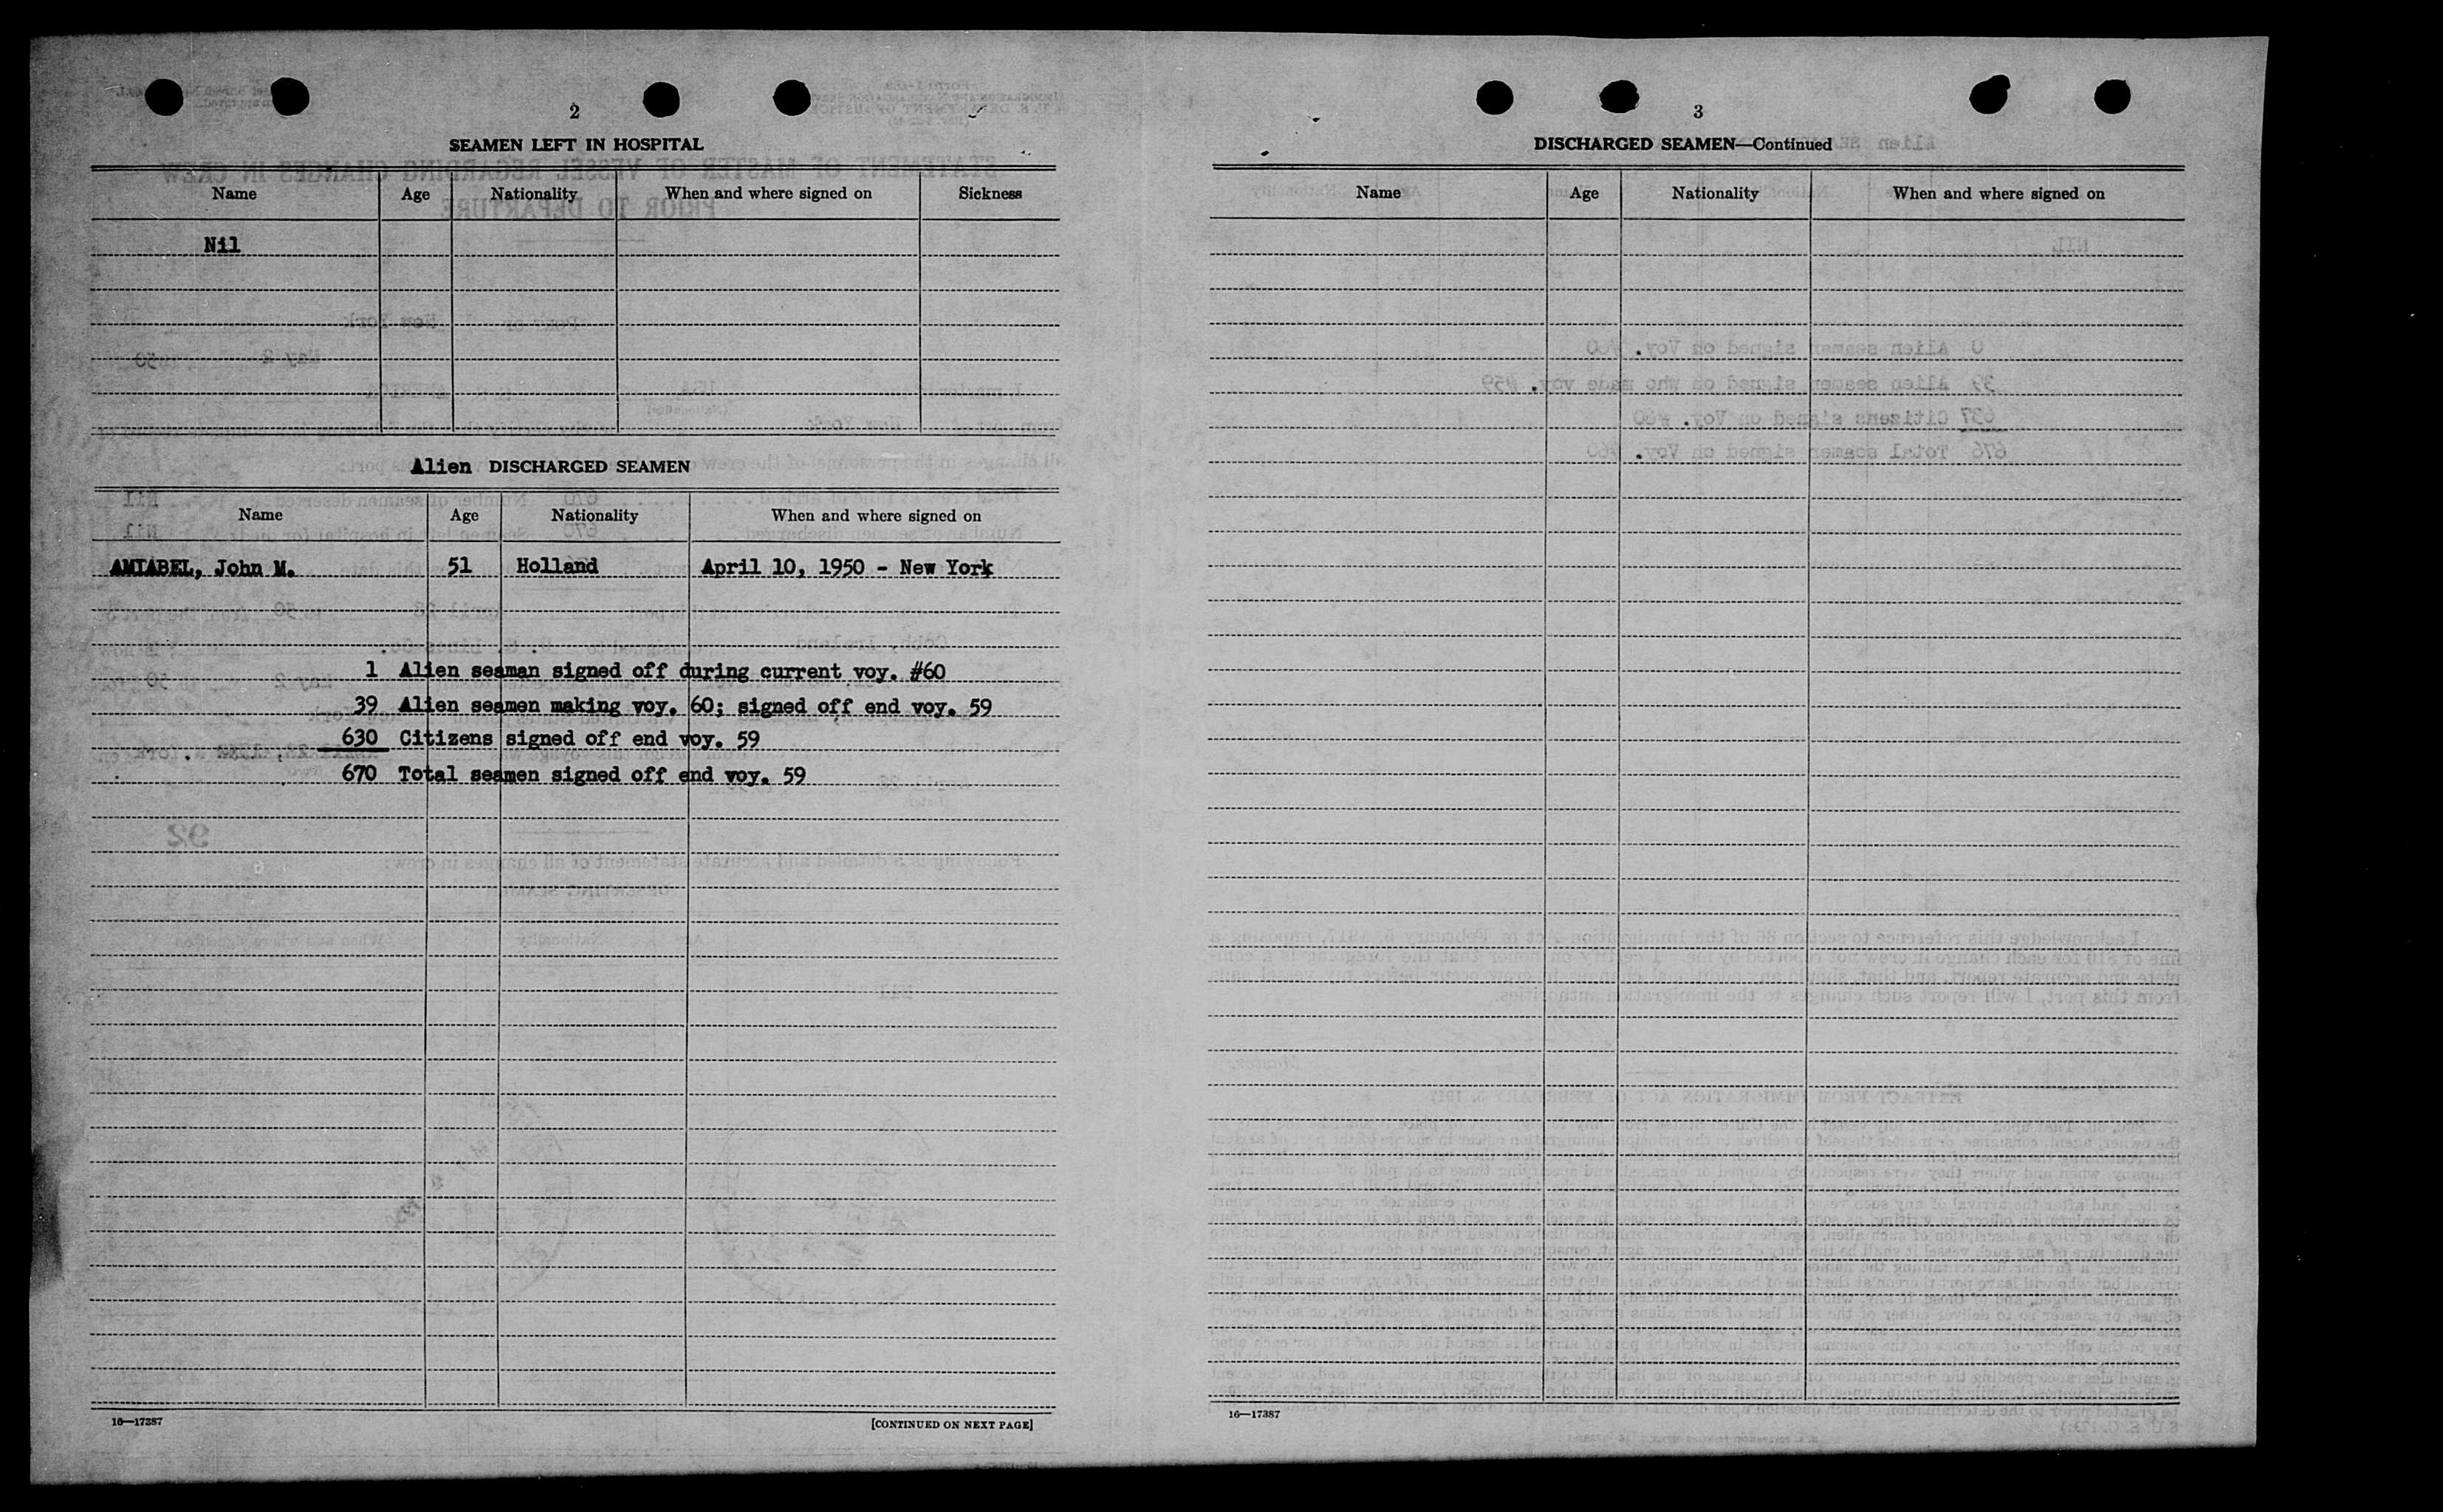 2
SEAMEN LEFT IN HOSPITAL
Name Age Nationality When and where signed on Sickness
Nil
Alien DISCHARGED SEAMEN
Name Age Nationality When and where signed on
AMIABEL, John M. 51 Holland April 10, 1950 - New York
1 Alien seaman signed off during current voy. #60
39 Alien seamen making voy. 60; signed off end voy. 59
630 Citizens signed off end voy. 59
670 Total seamen signed off end voy. 59
16—17387 [CONTINUED ON NEXT PAGE]
3
DISCHARGED SEAMEN—Continued
Name Age Nationality When and where signed on
16—17387